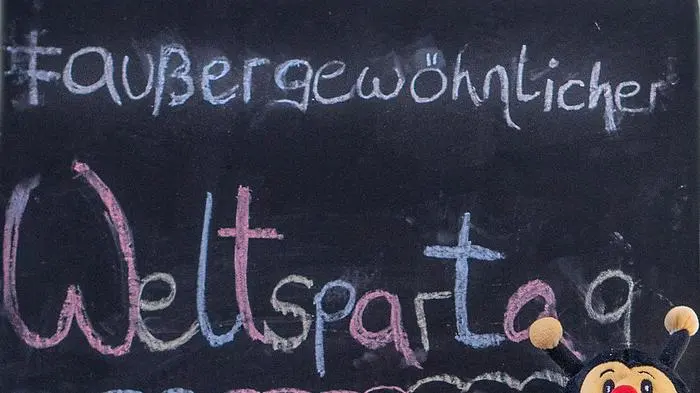 #außergewöhnlicher
Weltspartag